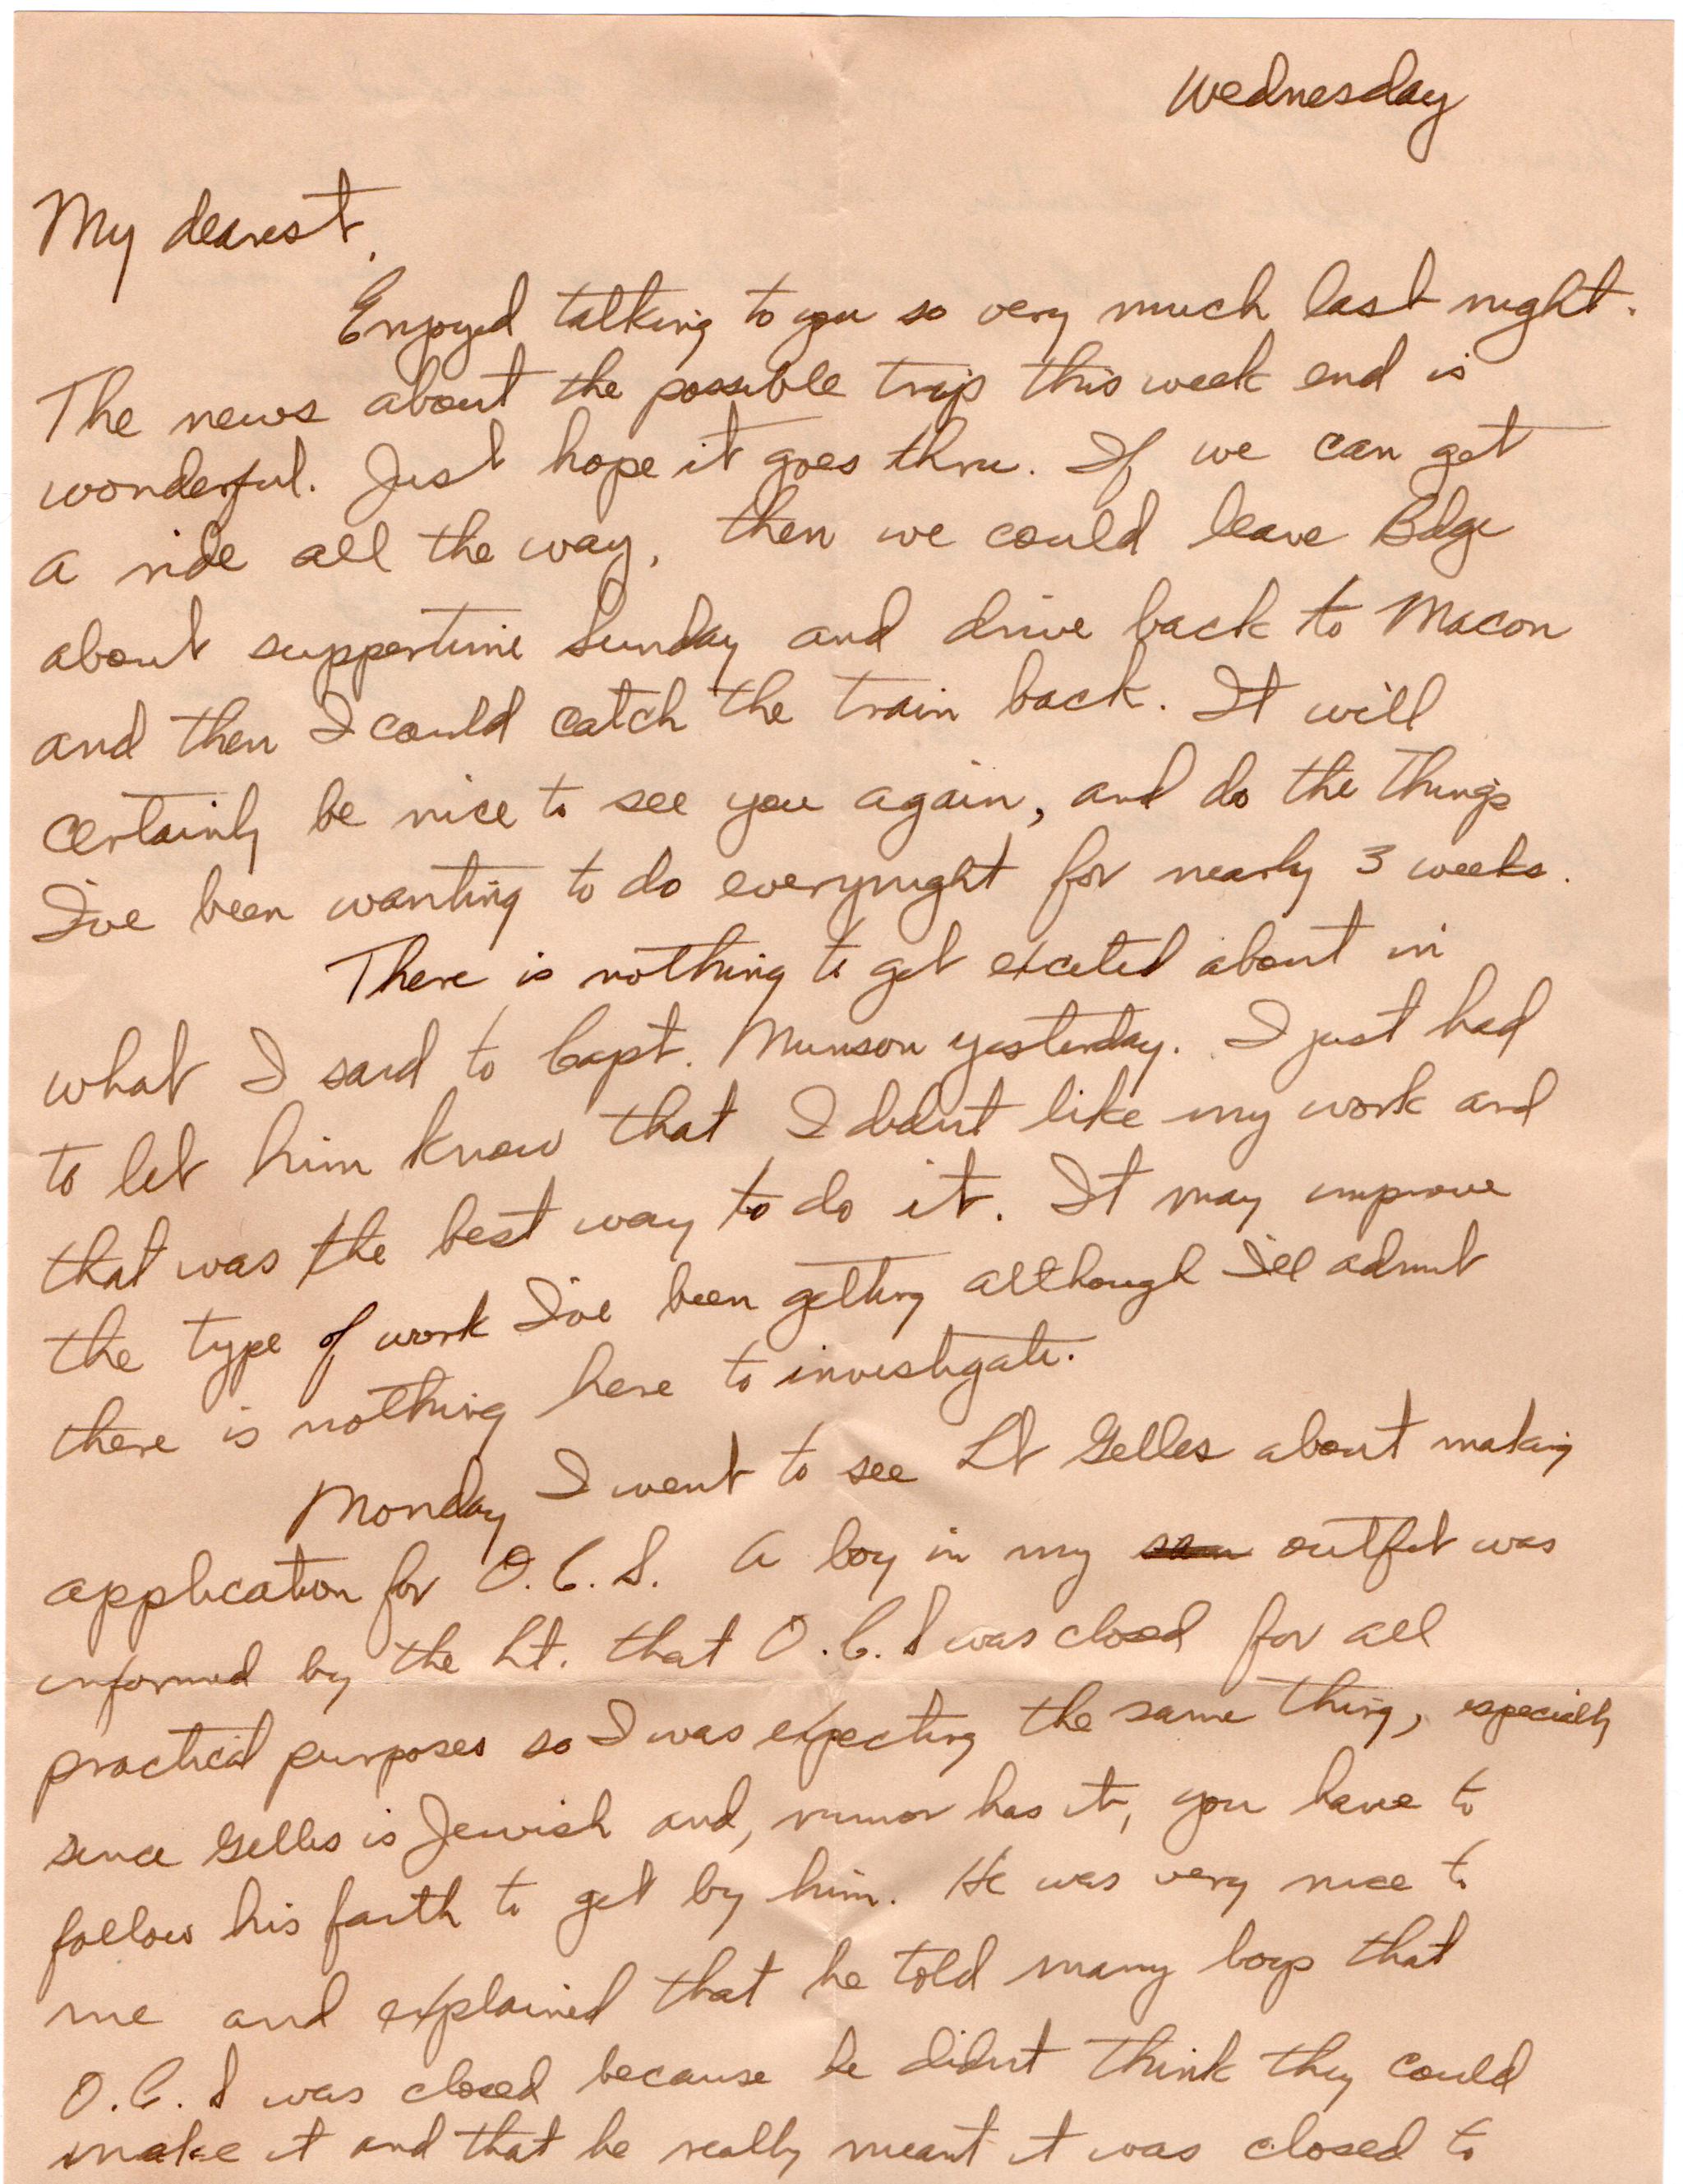 Wednesday
My dearest,
Enjoyed talking to you so very much last night.
The news about the possible trip this week end is
wonderful. Just hope it goes thru. If we can get
a ride all the way, then we could leave Bdge
about suppertime Sunday and drive back to Macon
and then I could catch the train back. It will
certainly be nice to see you again, and do the things
I've been wanting to do everynight for nearly 3 weeks.
There is nothing to get excited about in
what I said to Capt. Munson yesterday. I just had
to let him know that I didn't like my work and
that was the best way to do it. It may improve
the type of work I've been getting although I'll admit
there is nothing here to investigate.
Monday I went to see Lt Gelles about making
application for O.C.S. A boy in my outfit was
informed by the Lt. that O.C.S was closed for all
practical purposes so I was expecting the same thing, especially
since Gelles is Jewish and, rumor has it, you have to
follow his faith to get by him. He was very nice to
me and explained that he told many boys that
O.C.S was closed because he didn't think they could
make it and that he really meant it was closed to